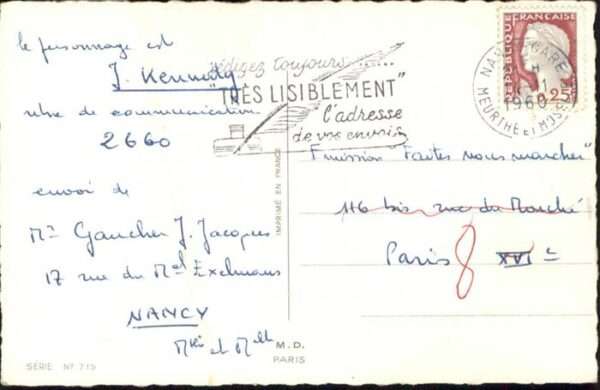 le personnage est
J. Kennedy
de communication
2660
envoi de
Mr Gaucher J. Jacques
17 rue du Mal Exelmans
NANCY
Mthe et Mlle
SÉRIE Nº 715
rédigez toujours ......
"TRÈS LISIBLEMENT"
l'adresse
de vos envois
IMPRIMÉ EN FRANCE
M.D.
PARIS
RÉPUBLIQUE FRANÇAISE
0,25
NANCY GARE
1960
MEURTHE ET MOSELLE
Emission "Faites nous marcher"
116 bis rue du Marché
Paris 8 XVIe